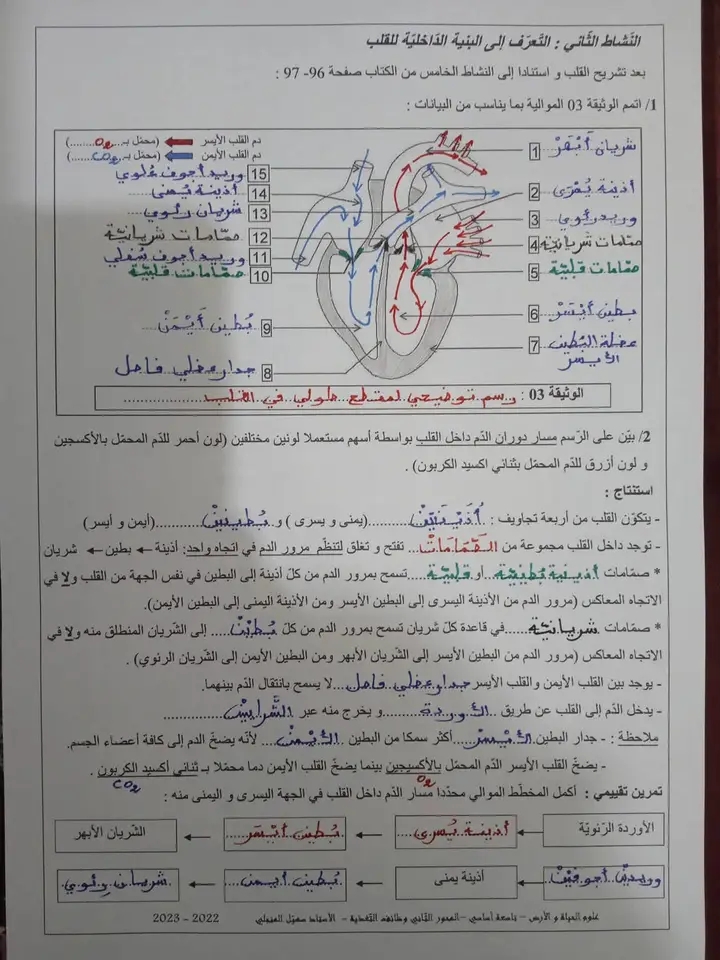 النّشاط الثّاني : التّعرّف إلى البنية الدّاخليّة للقلب
بعد تشريح القلب و استنادا إلى النشاط الخامس من الكتاب صفحة 96- 97 :
1/ اتمم الوثيقة 03 الموالية بما يناسب من البيانات :
دم القلب الأيسر (محمّل بـ...O2......)
دم القلب الأيمن (محمّل بـ...CO2......)
1 شريان أَبْهَرْ
2 أذينة يُسْرَى
3 وريد رئوي
4 صمّامات شريانيّة
5 صمّامات قلبيّة
6 بطين أَيْسَرْ
7 عضلة البُطين الأيسر
15 وريد أجوف عُلوي
14 أذينة يُمنى
13 شريان رئوي
12 صمّامات شريانيّة
11 وريد أجوف سُفلي
10 صمّامات قلبيّة
9 بُطين أَيْمَنْ
8 جدار عضلي فاصل
الوثيقة 03 : رسم توضيحي لمقطع طولي في القلب
2/ بيّن على الرّسم مسار دوران الدّم داخل القلب بواسطة أسهم مستعملا لونين مختلفين (لون أحمر للدّم المحمّل بالأكسجين
و لون أزرق للدّم المحمّل بثنائي اكسيد الكربون) .
استنتاج :
- يتكوّن القلب من أربعة تجاويف : أُذَيْنَتَيْنْ (يمنى و يسرى ) و بُطينينْ (أيمن و أيسر)
- توجد داخل القلب مجموعة من الصّمّامَاتْ تفتح و تغلق لتنظّم مرور الدم في اتجاه واحد: أذينة ← بطين ← شريان
* صمّامات أذينية بُطينيّة أو قلبيّة تسمح بمرور الدم من كلّ أذينة إلى البطين في نفس الجهة من القلب ولا في
الاتجاه المعاكس (مرور الدم من الأذينة اليسرى إلى البطين الأيسر ومن الأذينة اليمنى إلى البطين الأيمن).
* صمّامات شريانيّة في قاعدة كلّ شريان تسمح بمرور الدم من كلّ بُطينْ إلى الشّريان المنطلق منه ولا في
الاتجاه المعاكس (مرور الدم من البطين الأيسر إلى الشّريان الأبهر ومن البطين الأيمن إلى الشّريان الرئوي).
- يوجد بين القلب الأيمن والقلب الأيسر جدار عضلي فاصل لا يسمح بانتقال الدّم بينهما.
- يدخل الدّم إلى القلب عن طريق الأوردة و يخرج منه عبر الشّرايينْ
ملاحظة : - جدار البطين الأيسرْ أكثر سمكا من البطين الأيمنْ لأنّه يضخّ الدم إلى كافة أعضاء الجسم.
- يضخّ القلب الأيسر الدّم المحمّل بالأكسيجين بينما يضخّ القلب الأيمن دما محمّلا بـ ثنائي أكسيد الكربون .
O2 CO2
تمرين تقييمي : أكمل المخطّط الموالي محدّدا مسار الدّم داخل القلب في الجهة اليسرى و اليمنى منه :
الأوردة الرّئويّة ← أذينة يُسرى ← بُطين أَيْسَرْ ← الشّريان الأبهر
وريدينْ أجوفَيْنْ ← أذينة يمنى ← بُطين أيمن ← شريان رئوي
2022 - 2023